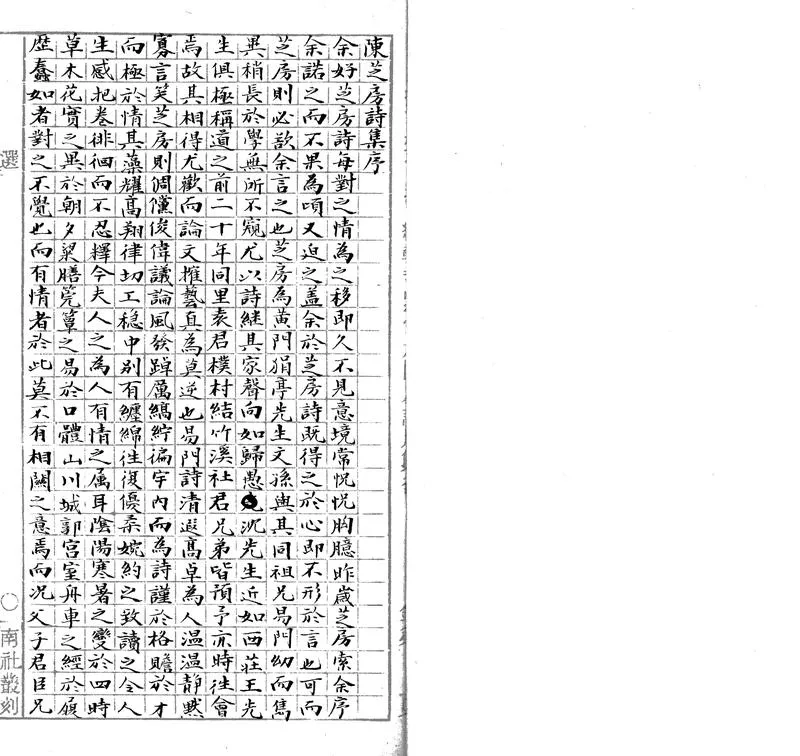 陳芝房詩集序
余好芝房詩每對之情為之移即久不見意境常怳怳胸臆昨歲芝房索余序
余諾之而不果為頃又迫之蓋余於芝房詩既得之於心即不形於言也可而
芝房則必欲余言之也芝房為黃門狷亭先生文孫與其同祖兄易門幼而雋
異稍長於學無所不窺尤以詩継其家聲向如歸愚沈先生近如西莊王先
生俱極稱道之前二十年同里袁君樸村結竹溪社君兄弟皆預予亦時往會
焉故其相得尤歡而論文搉藝真為莫逆也易門詩清遐高卓為人溫溫靜默
寡言笑芝房則倜儻俊偉議論風發踔厲縞紵徧宇內而為詩謹於格贍於才
而極於情其藻耀高翔律切工穩中別有纏綿往復優柔婉約之致讀之令人
生感把卷徘徊而不忍釋今夫人之為人有情之属耳陰陽寒暑之變於四時
草木花實之異於朝夕粱膳莞簟之易於口體山川城郭宮室舟車之經於履
歷蠢如者對之不覺也而有情者於此莫不有相關之意焉而況父子君臣兄
選
〇
南社叢刻